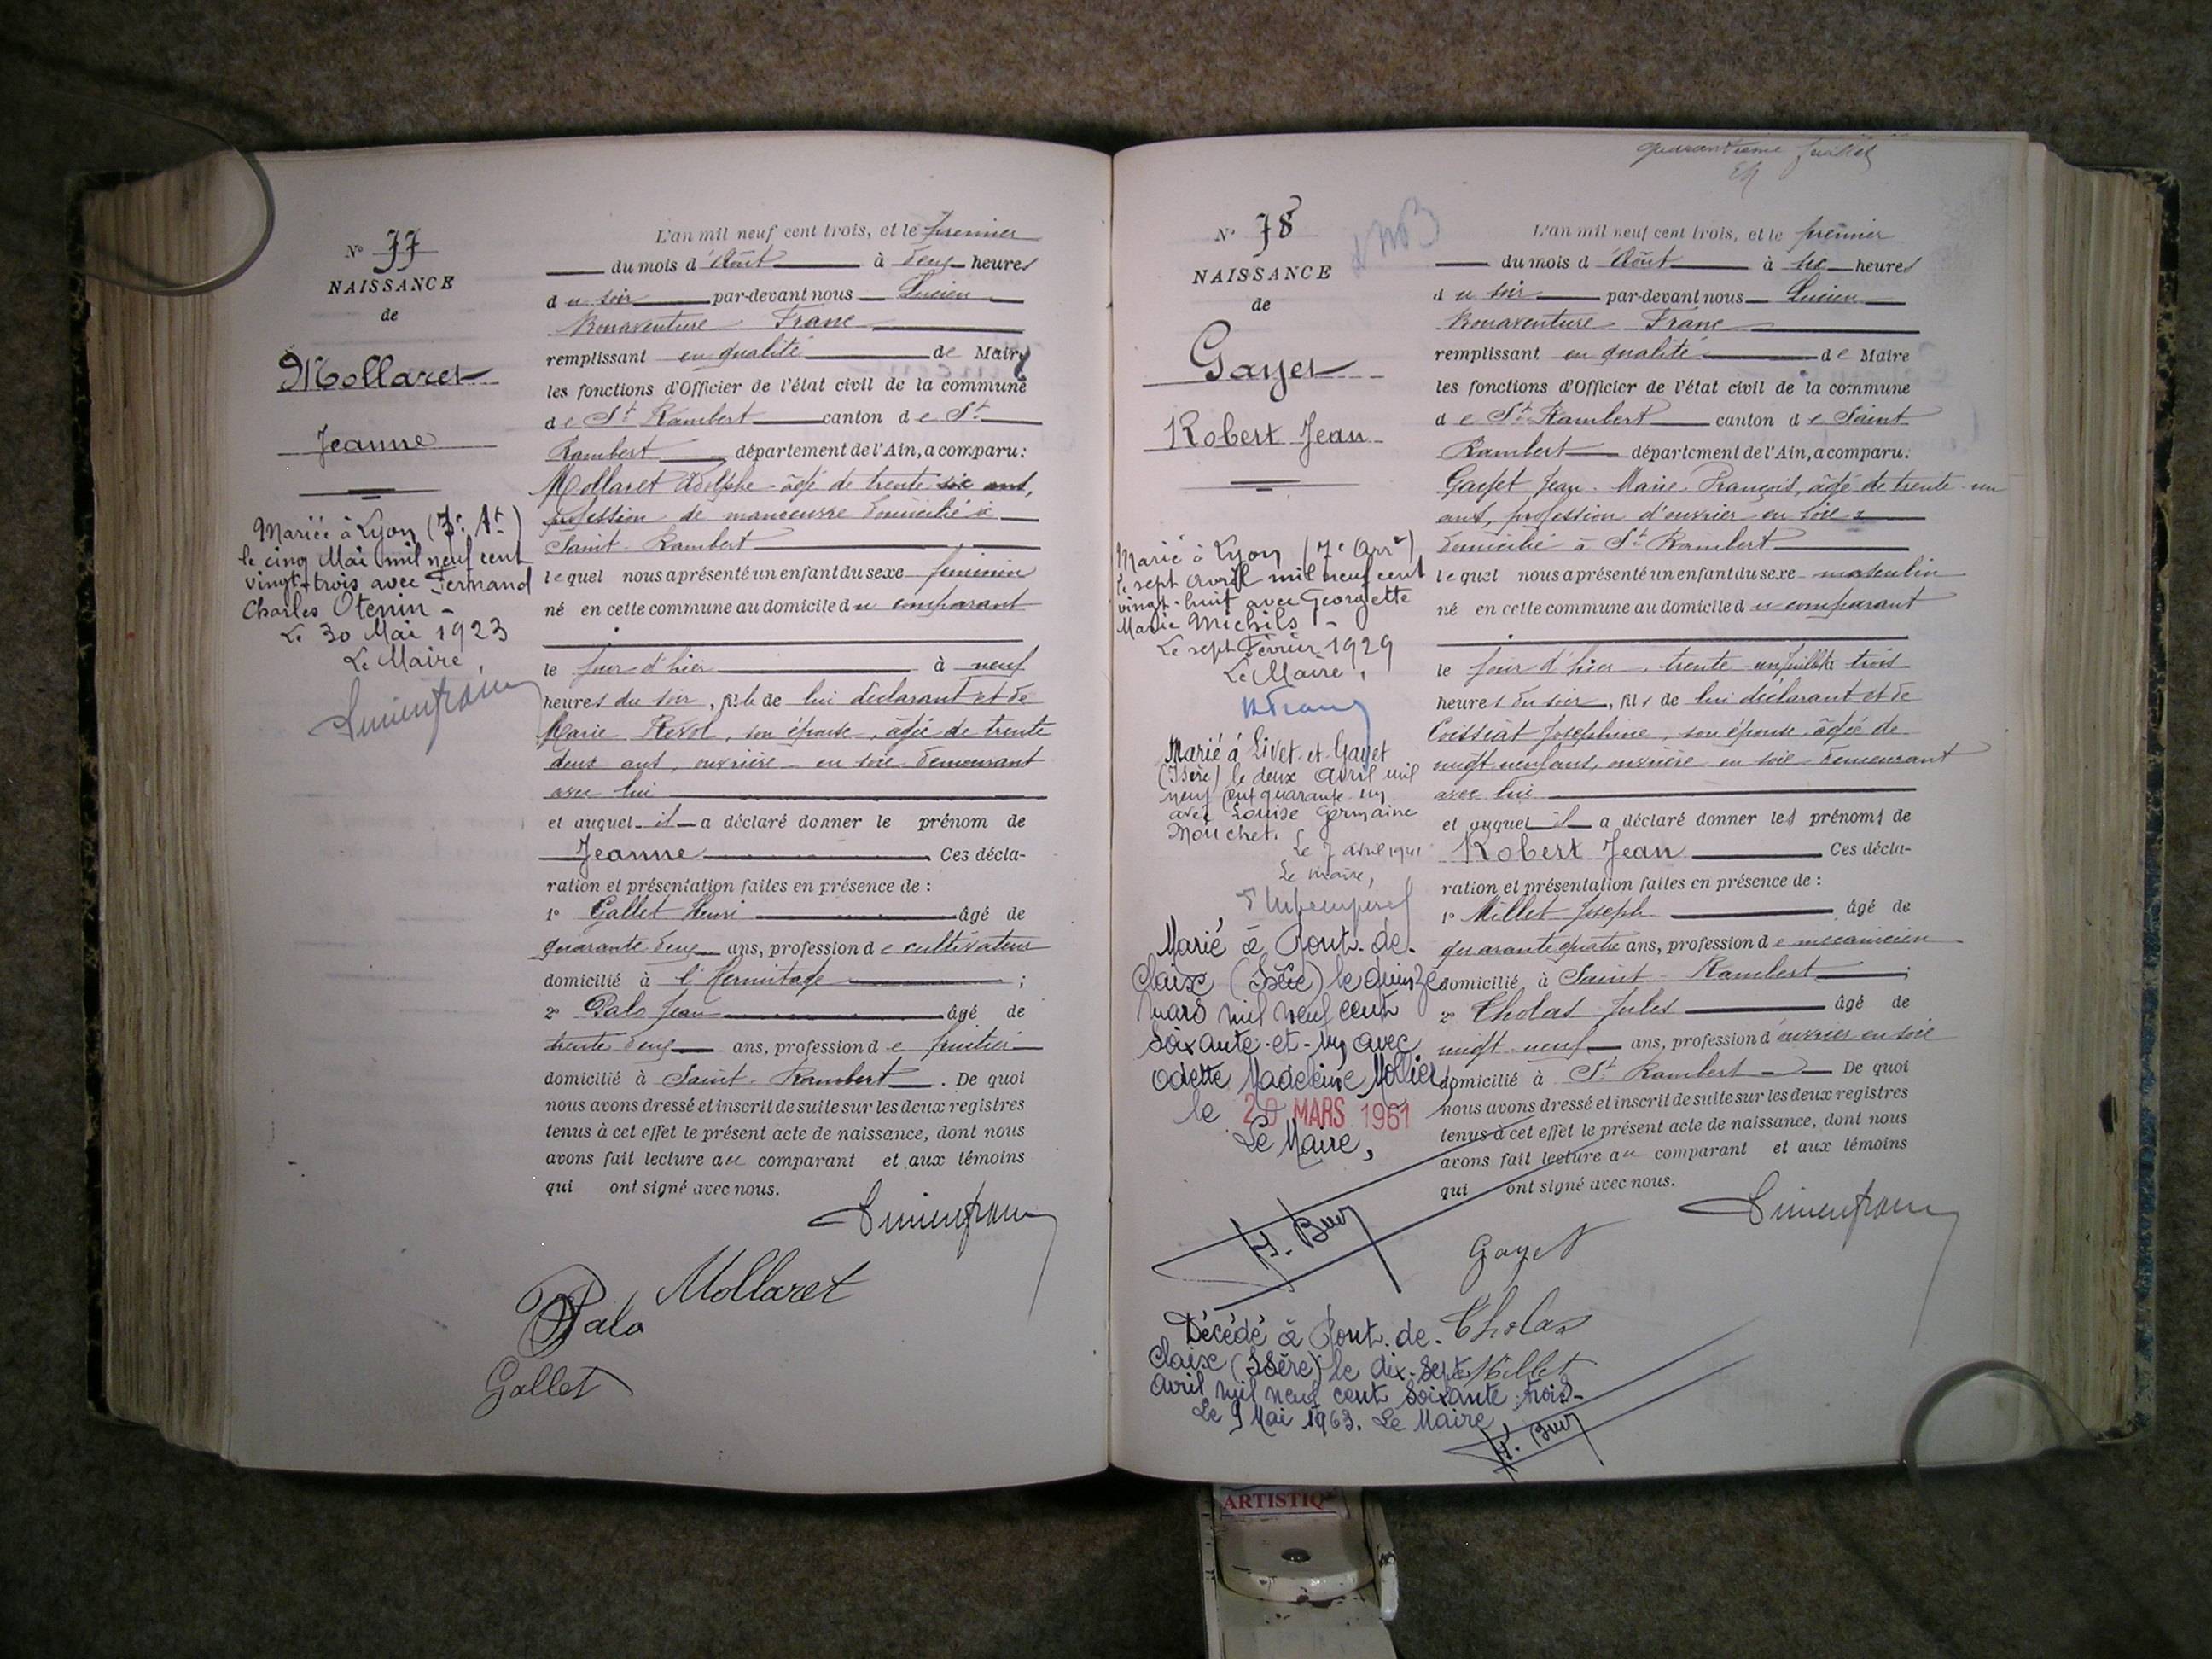 N° 77
NAISSANCE
de
Mollaret
Jeanne
Mariée à Lyon (7e At)
le cinq Mai mil neuf cent
vingt-trois avec Fernand
Charles Otenin -
Le 30 Mai 1923
Le Maire,
L'an mil neuf cent trois, et le premier
du mois d'Août à deux heures
du soir par-devant nous Lucien
Bonaventure Franc
remplissant en qualité de Maire
les fonctions d'Officier de l'état civil de la commune
de St Rambert canton de St
Rambert département de l'Ain, a comparu:
Mollaret Adolphe âgé de trente six ans,
profession de manoeuvre domicilié à
Saint-Rambert
lequel nous a présenté un enfant du sexe féminin
né en cette commune au domicile du comparant
le jour d'hier à neuf
heures du soir, fille de lui déclarant et de
Marie Revol, son épouse, âgée de trente
deux ans, ouvrière en soie demeurant
avec lui
et auquel il a déclaré donner le prénom de
Jeanne Ces décla-
ration et présentation faites en présence de :
1° Gallet Henri âgé de
quarante deux ans, profession de cultivateur
domicilié à l'Hermitage ;
2° Palo Jean âgé de
trente deux ans, profession de fruitier
domicilié à Saint-Rambert. De quoi
nous avons dressé et inscrit de suite sur les deux registres
tenus à cet effet le présent acte de naissance, dont nous
avons fait lecture au comparant et aux témoins
qui ont signé avec nous.
Mollaret
Palo
Gallet
quarantième feuillet
N° 78
NAISSANCE
de
Gayet
Robert Jean
Marié à Lyon (7e Arrt)
le sept avril mil neuf cent
vingt-huit avec Georgette
Marie Michils -
Le sept Février 1929
Le Maire,
Marié à Livet-et-Gavet
(Isère) le deux avril mil
neuf cent quarante un
avec Louise Germaine
Mouchet.
Le 7 avril 1941
Le Maire,
Marié à Pont-de-
Claix (Isère) le quinze
mars mil neuf cent
soixante-et-un avec
Odette Madeleine Mollier
le 20 MARS 1961
Le Maire,
H. Buy
Décédé à Pont-de-
Claix (Isère) le dix-sept
avril mil neuf cent soixante-trois-
Le 9 Mai 1963. Le Maire,
H. Buy
L'an mil neuf cent trois, et le premier
du mois d'Août à six heures
du soir par-devant nous Lucien
Bonaventure Franc
remplissant en qualité de Maire
les fonctions d'Officier de l'état civil de la commune
de St-Rambert canton de Saint
Rambert département de l'Ain, a comparu:
Gayet Jean-Marie-François, âgé de trente-un
ans, profession d'ouvrier en soie
domicilié à St Rambert
lequel nous a présenté un enfant du sexe masculin
né en cette commune au domicile du comparant
le jour d'hier, trente un juillet à trois
heures du soir, fils de lui déclarant et de
Coissiat Joséphine, son épouse âgée de
vingt neuf ans, ouvrière en soie demeurant
avec lui
et auquel il a déclaré donner les prénoms de
Robert Jean Ces décla-
ration et présentation faites en présence de :
1° Millet Joseph âgé de
quarante quatre ans, profession de mécanicien
domicilié à Saint-Rambert ;
2° Cholas Jules âgé de
vingt neuf ans, profession d'ouvrier en soie
domicilié à St Rambert De quoi
nous avons dressé et inscrit de suite sur les deux registres
tenus à cet effet le présent acte de naissance, dont nous
avons fait lecture au comparant et aux témoins
qui ont signé avec nous.
Gayet
Cholas
Millet
ARTISTIQ